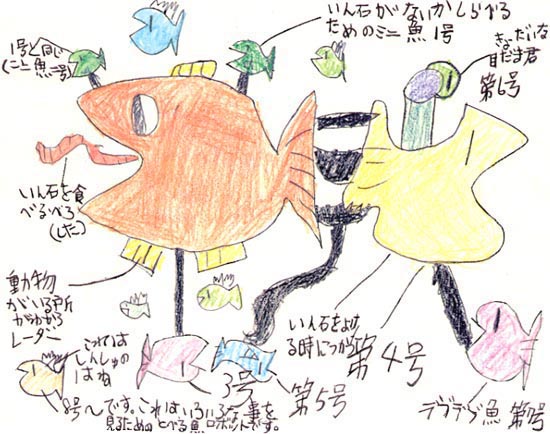 1号と同じ
(ミニ魚2号)
いん石がないかしらべる
ためのミニ魚1号
きょだいな
目だま君
第6号
いん石を食
べるべろ
(した)
動物
がいる所
がわかる
レーダー
こっては
しんしゅの
はね
3号
第5号
いん石をよけ
る時につかう
第4号
デブデブ魚 第7号
8号〜です。これはいろいろな事を
見るためのとべる魚ロボットです。